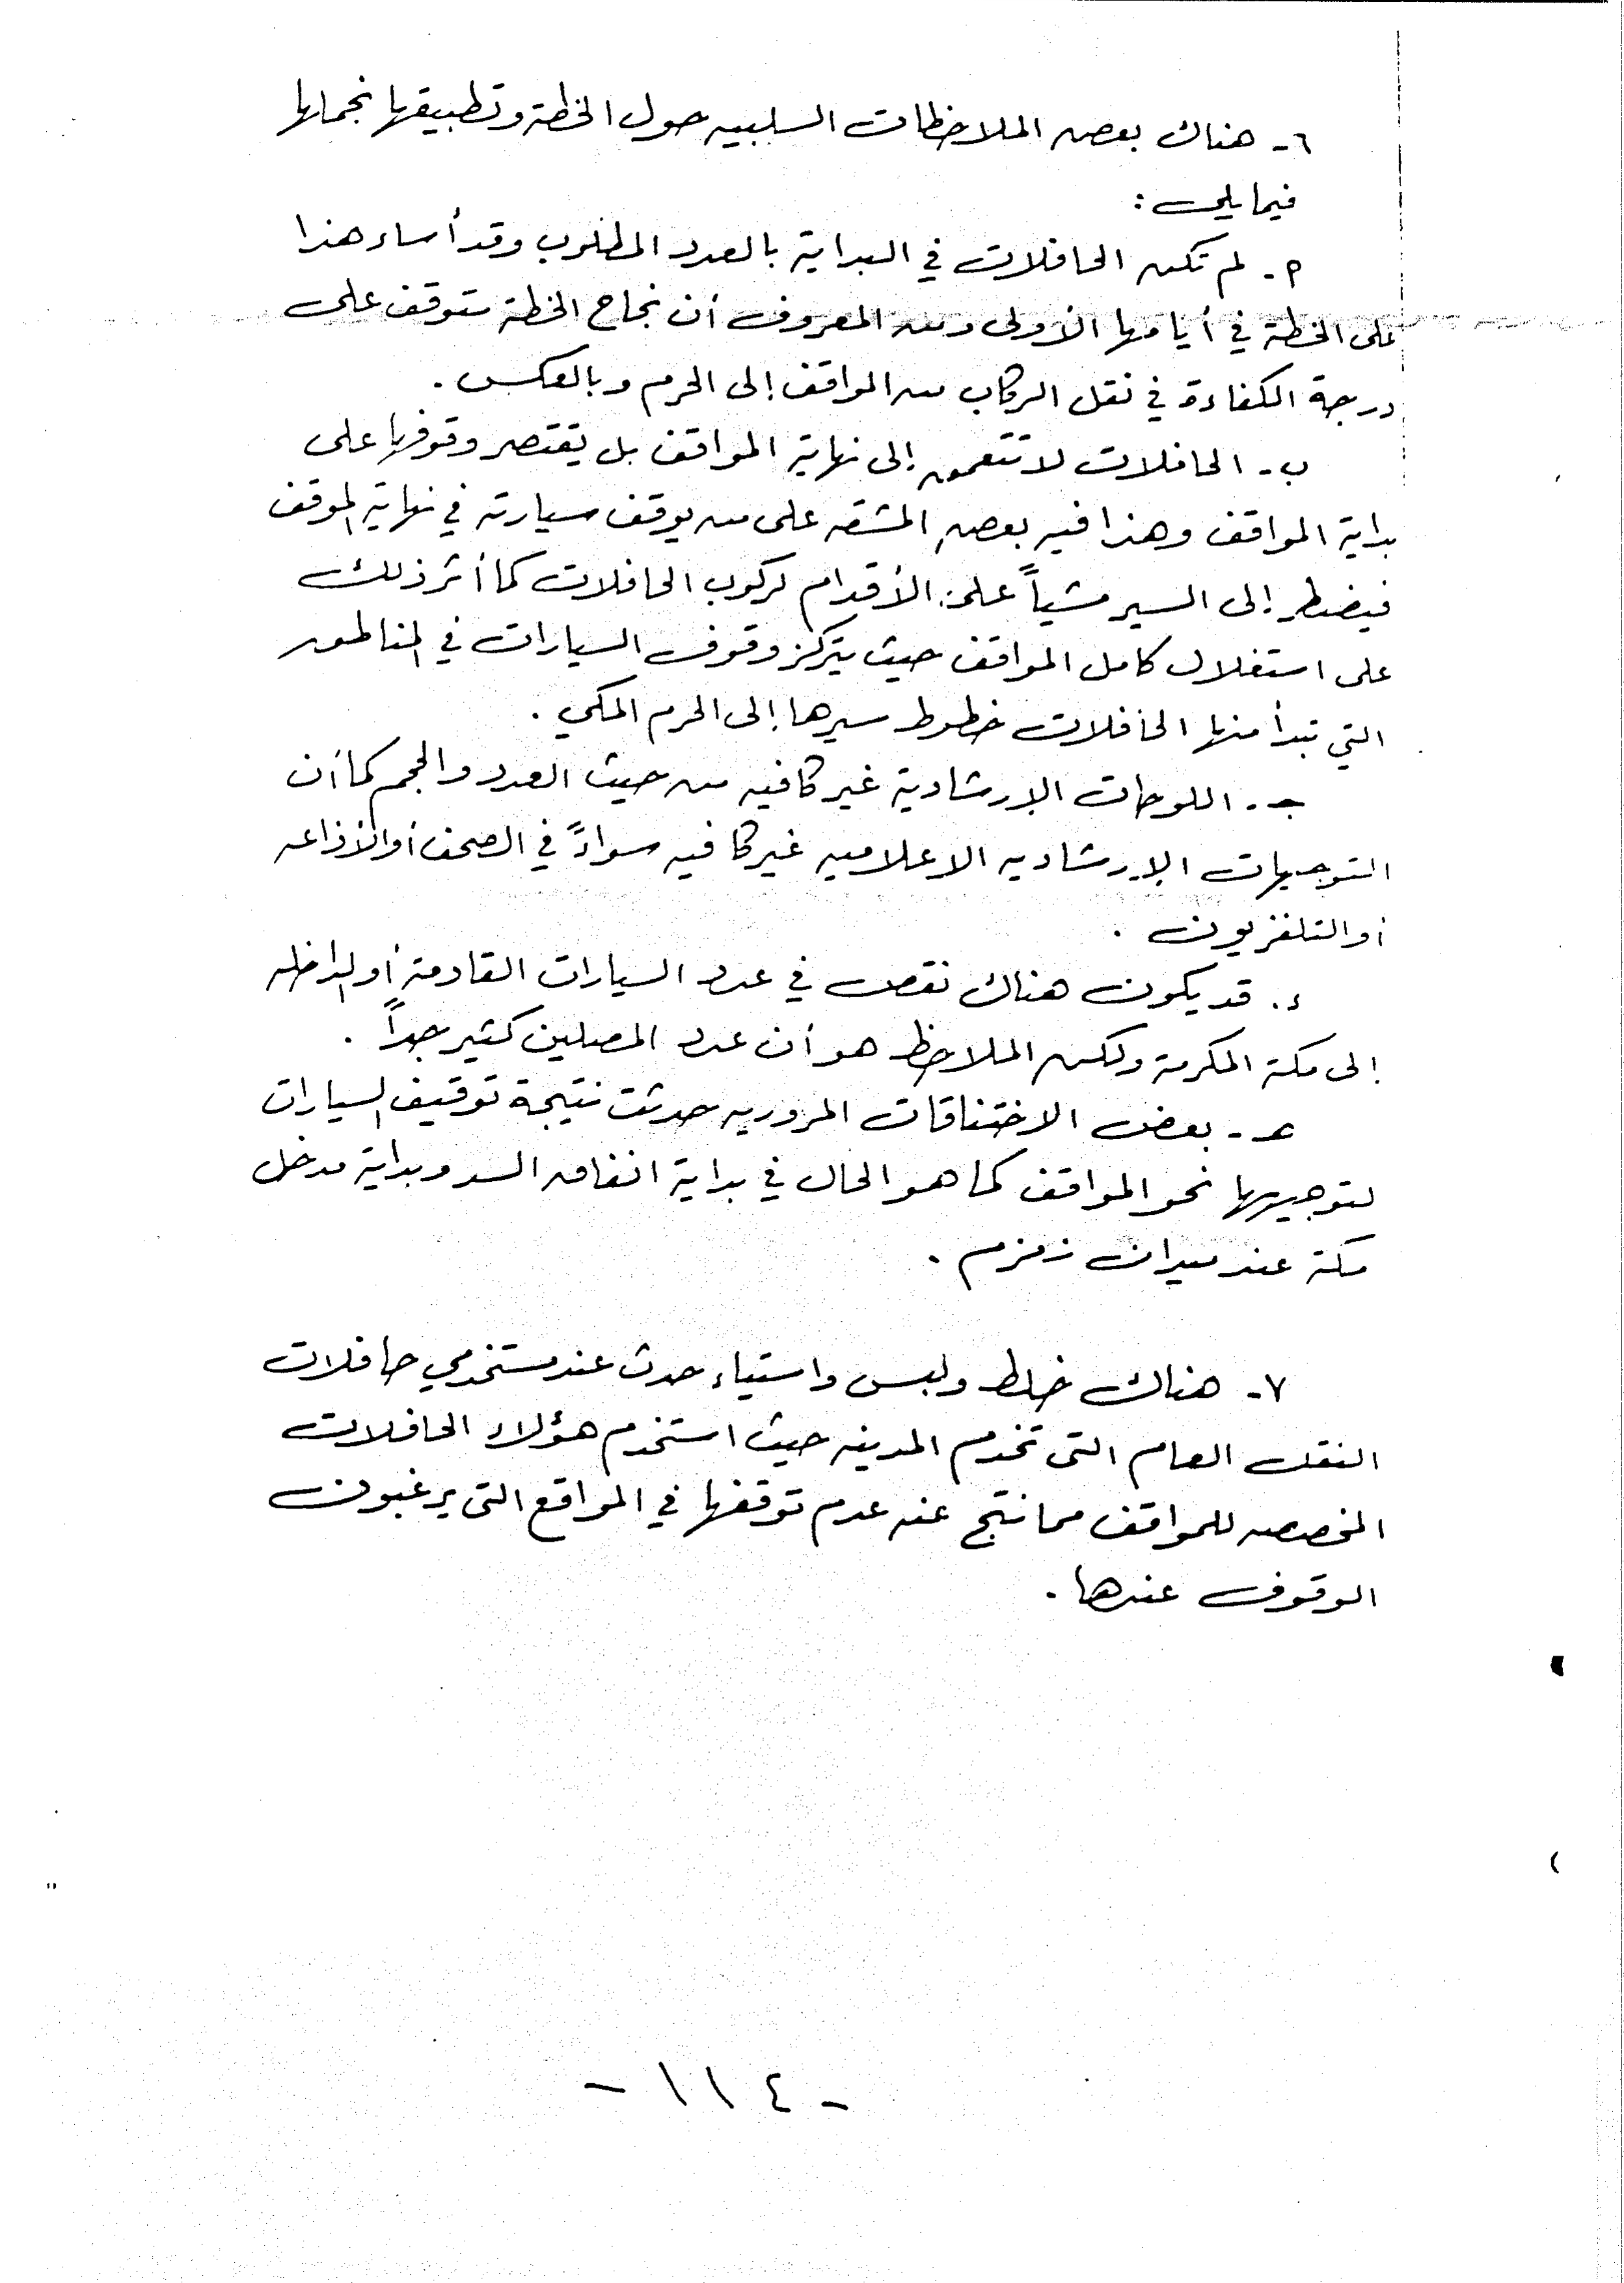 ٦- هناك بعض الملاحظات السلبيه حول الخطة وتطبيقها نجملها
فيما يلي :
أ- لم تكن الحافلات في البداية بالعدد المطلوب وقد أساء هذا
على الخطة في أيامها الأولى ومن المعروف أن نجاح الخطة متوقف على
درجة الكفاءة في نقل الركاب من المواقف إلى الحرم وبالعكس .
ب- الحافلات لا تتعمق إلى نهاية المواقف بل يقتصر وقوفها على
بداية المواقف وهذا فيه بعض المشقه على من يوقف سيارته في نهاية الموقف
فيضطر إلى السير مشياً على الأقدام لركوب الحافلات كما أثر ذلك
على استغلال كامل المواقف حيث يتركز وقوف السيارات في المناطق
التي تبدأ منها الحافلات خطوط سيرها إلى الحرم المكي .
جـ- اللوحات الإرشادية غير كافيه من حيث العدد والحجم كما أن
التوجيهات الإرشاديه الاعلاميه غير كافيه سواءً في الصحف أو الأذاعه
أو التلفزيون .
د. قد يكون هناك نقص في عدد السيارات القادمة أو الداخله
إلى مكة المكرمة ولكن الملاحظ هو أن عدد المصلين كثير جداً .
هـ- بعض الاختناقات المروريه حدثت نتيجة توقيف السيارات
لتوجيهها نحو المواقف كما هو الحال في بداية انفاق السد وبداية مدخل
مكة عند ميدان زمزم .
٧- هناك خلط ولبس واستياء حدث عند مستخدمي حافلات
النقل العام التى تخدم المدينه حيث استخدم هؤلاء الحافلات
المخصصه للمواقف مما نتج عنه عدم توقفها في المواقع التى يرغبون
الوقوف عندها .
- ١١٤ -